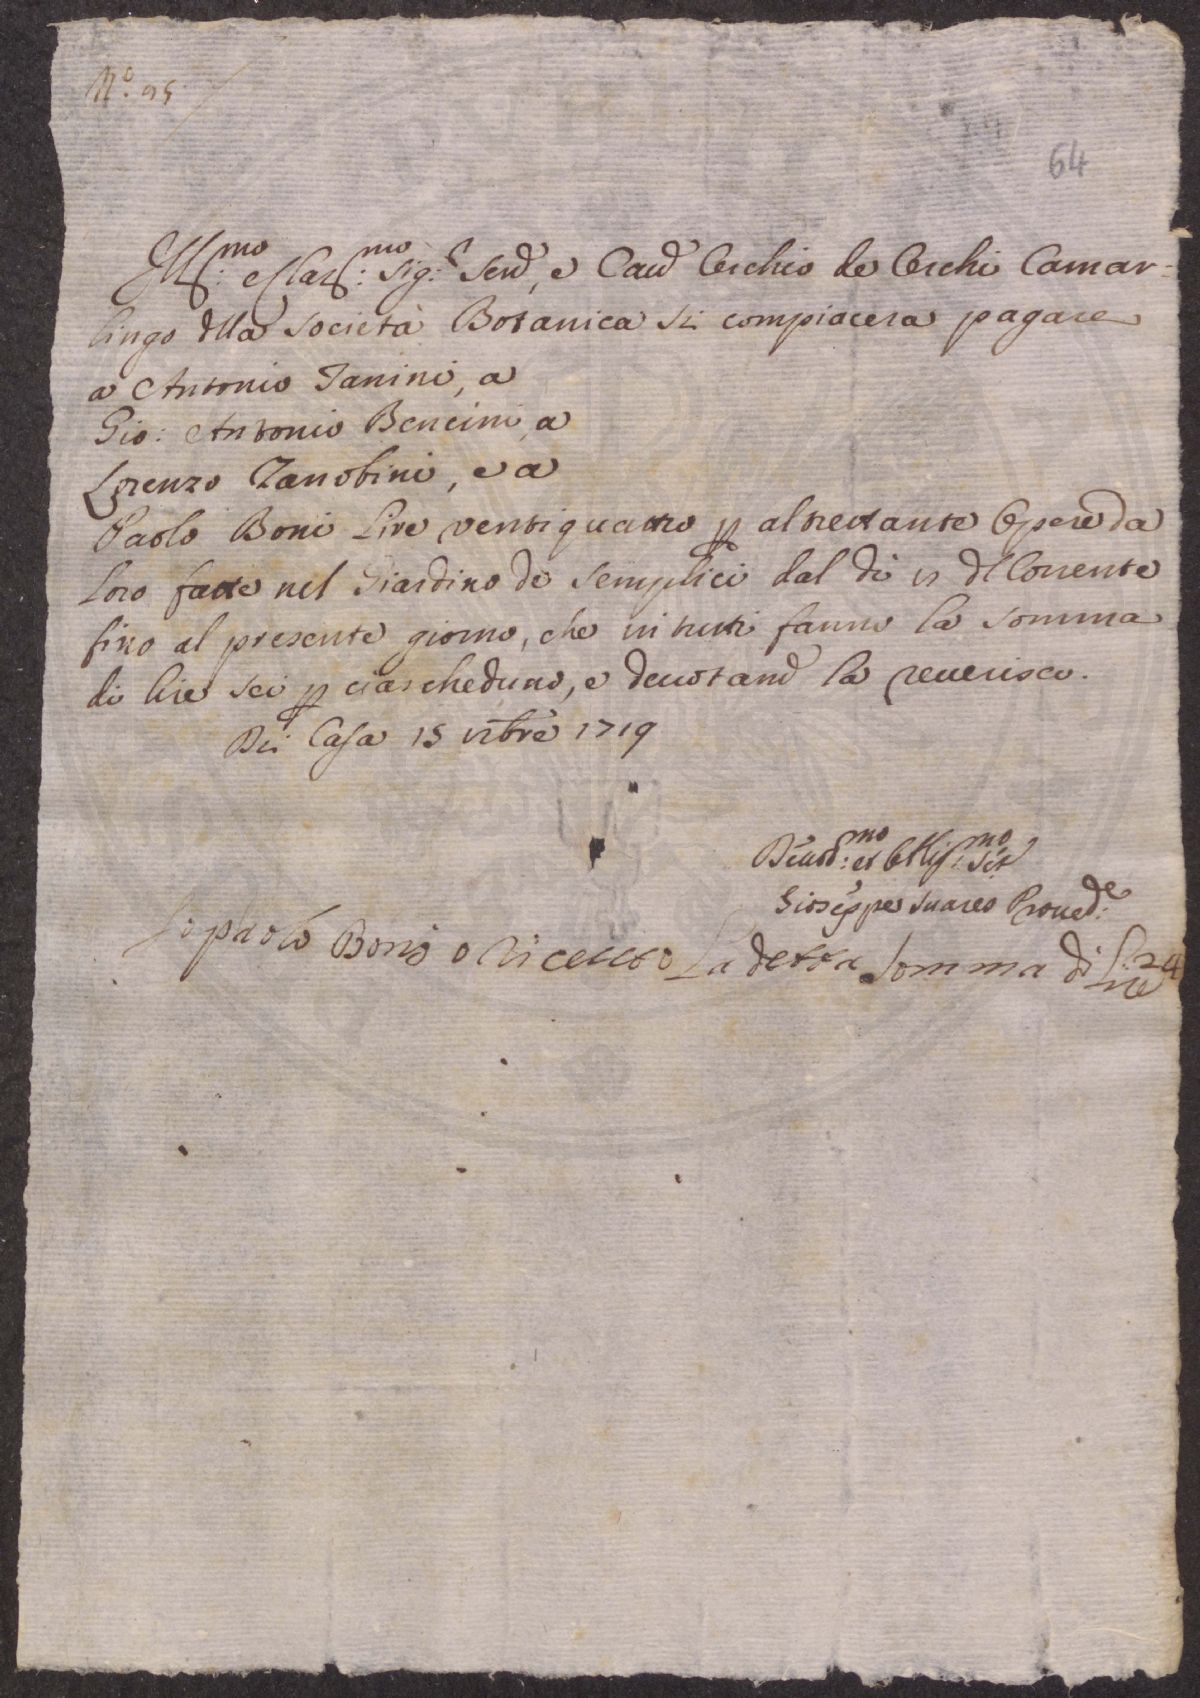 N.o 95
64
Ill:mo e Clar:mo Sig:r Send, e Caud Cerchio de Cerchi Camar=
lingo dlla Società Botanica si compiacera pagare
a Antonio Janini, a
Gio: Antonio Bencini a
Lorenzo Zanobini, e a
Paolo Boni Lire ventiquattro p altrettante Opere da
loro fatte nel Giardino de Semplici dal di dl Corrente
fino al presente giorno, che in tutti fanno la somma
di lire sei p ciascheduno, e deuotamd la reuerisco.
Di Casa 15 1719
Deuot:mo et Obblig:mo
Gioseppe Suares Proued:re
Io paolo Boni o riceuto La detta somma di Lire 24